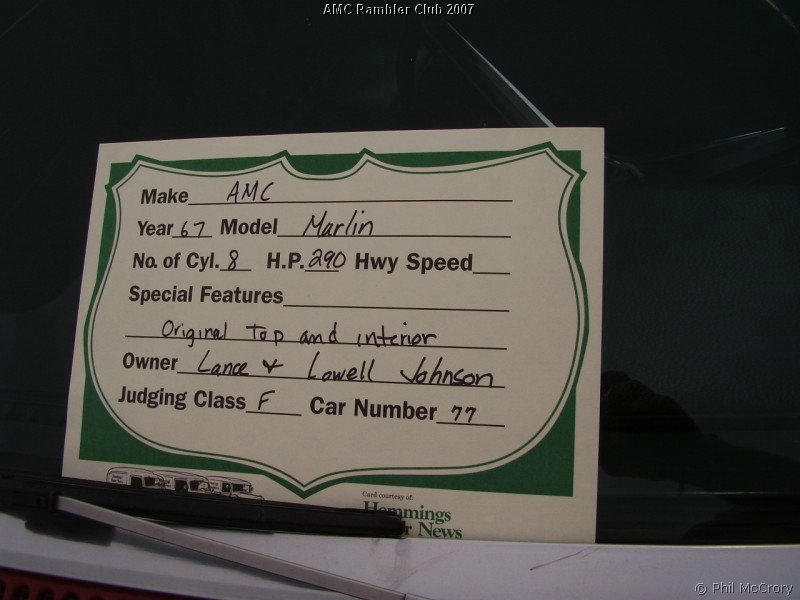 AMC Rambler Club 2007
Make AMC
Year 67 Model Marlin
No. of Cyl. 8 H.P. 290 Hwy Speed
Special Features
Original Top and interior
Owner Lance & Lowell Johnson
Judging Class F Car Number 77
Card courtesy of:
Hemmings
News
© Phil McCrory